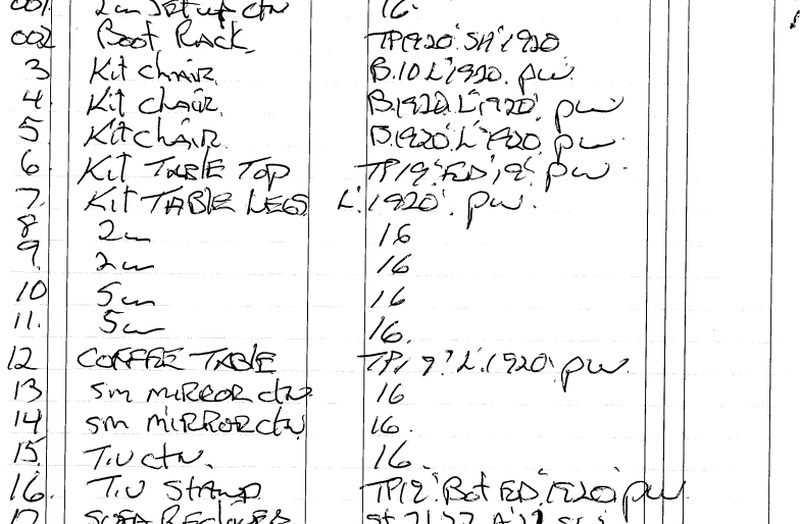 001. 2m Setup ctn 16.
002 Boot Rack TP1920.SH.1920
3 Kit chair B.10 L.1920. pw.
4. Kit chair B.1920.L.1920. pw
5 Kit chair B.1920.L.1920. pw.
6 Kit TABLE Top TP19.ED.9. pw.
7. Kit TABLE LEGS L.1920. pw.
8 2m 16
9. 2m 16
10 5m 16
11. 5m 16.
12 COFFEE TABLE L.1920. pw.
13 SM MIRROR ctn 16
14 SM MIRROR ctn 16.
15. T.V ctn. 16.
16. T.V STAND Bot ED.1920. pw.
17 SOFA